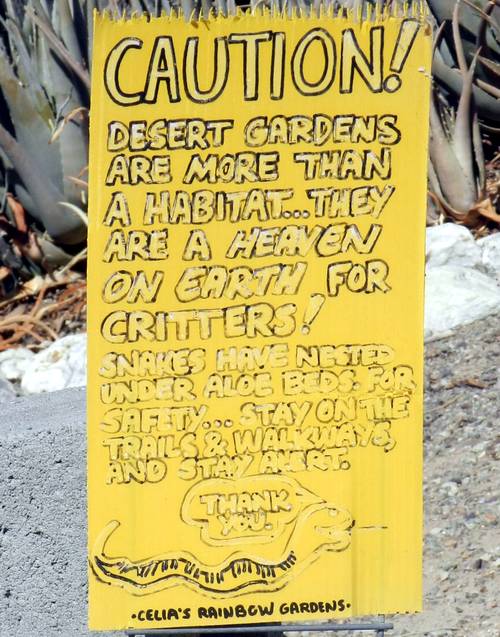 CAUTION!
DESERT GARDENS
ARE MORE THAN
A HABITAT...THEY
ARE A HEAVEN
ON EARTH FOR
CRITTERS!
SNAKES HAVE NESTED
UNDER ALOE BEDS. FOR
SAFETY... STAY ON THE
TRAILS & WALKWAYS,
AND STAY ALERT.
THANK
YOU.
•CELIA'S RAINBOW GARDENS•